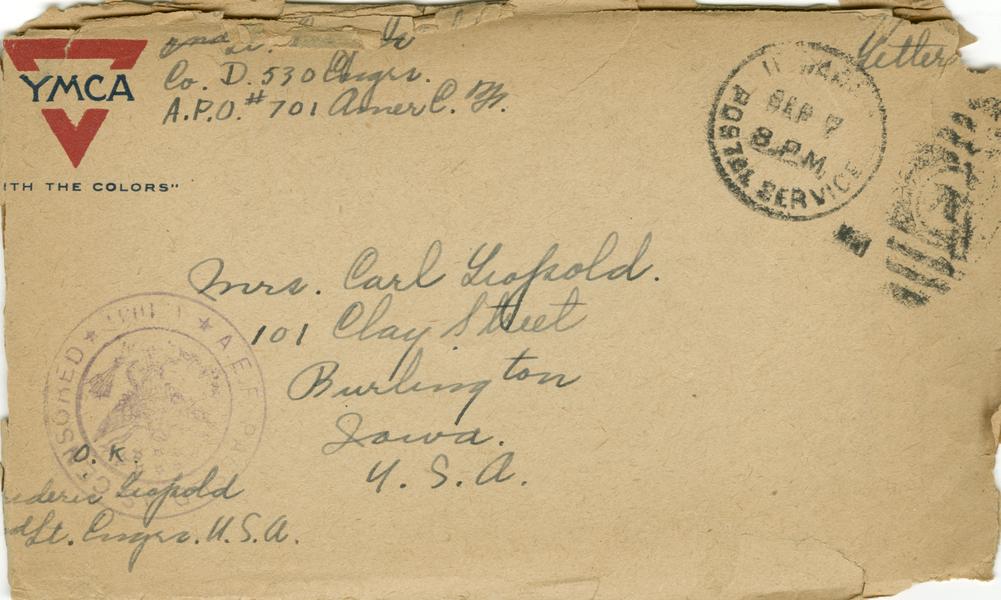 YMCA
ITH THE COLORS"
Co. D. 530 Engrs.
A.P.O. #701 Amer E. F.
Letter
SEP 7
8 P.M.
POSTAL SERVICE
Mrs. Carl Leopold.
101 Clay Street
Burlington
Iowa.
U. S. A.
A.E.F. PASSED CENSORED
O.K.
ederic Leopold
Lt. Engrs. U.S.A.